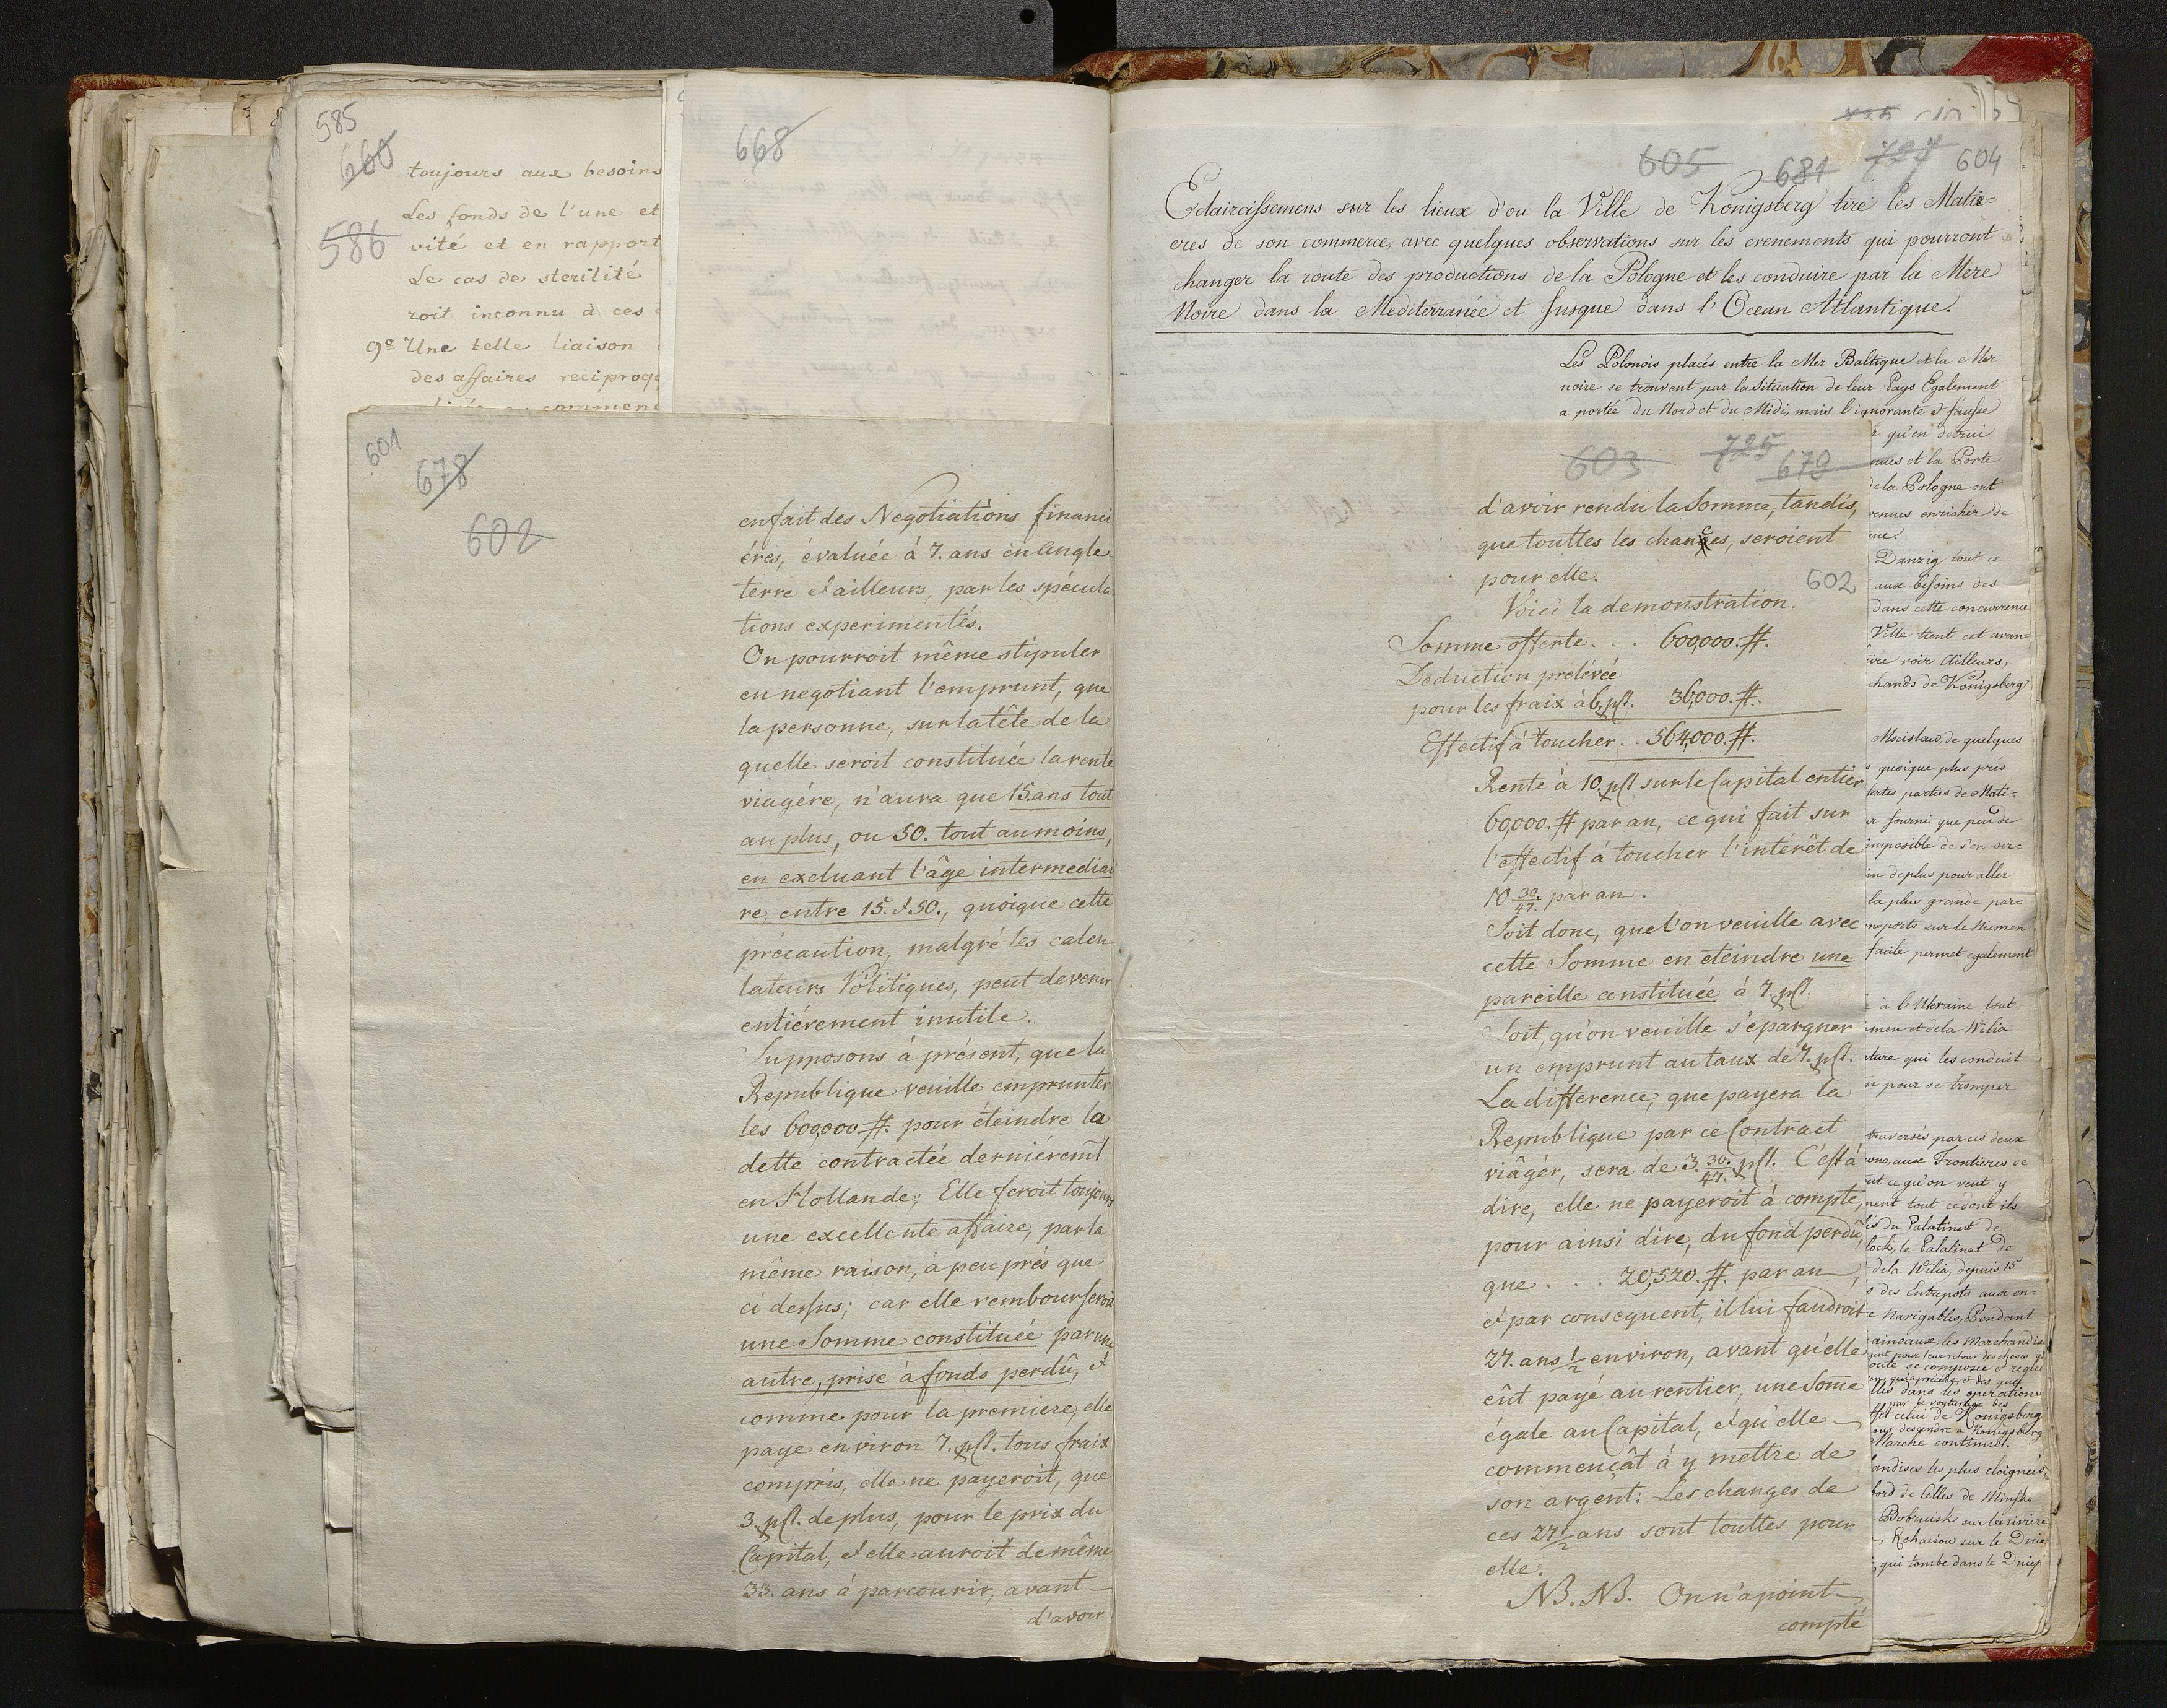 585
660
toujours aux besoins
Les fonds de l'une et
586
vité et en rapport
Le cas de sterilité
roit inconnu à ces
9º Une telle liaison
des affaires reciproq
commen
668
601
678
602
en fait des Negotiations financi
éres, évaluée à 7. ans en Angle
terre & ailleurs, par les spécula
tions experimentés.
On pourroit même stipuler
en negotiant l'emprunt, que
la personne, sur la tête de la
quelle seroit constituée la rente
viagére, n'aura que 15. ans tout
au plus, ou 50. tout au moins,
en excluant l'âge intermediai
re, entre 15. & 50., quoique cette
précaution, malgré les calcu
lateurs Politiques, peut devenir
entiérement inutile.
Supposons à présent, que la
Republique veuille emprunter
les 600,000 #. pour éteindre la
dette contractée derniéremt
en Hollande; Elle feroit toujours
une excellente affaire, par la
même raison, à peu prés que
ci dessus; car elle rembourseroit
une Somme constituée par une
autre, prise à fonds perdû, &
comme pour la premiere, elle
paye environ 7. pCt. tous fraix
compris, elle ne payeroit, que
3. pCt. de plus, pour le prix du
Capital, & elle auroit de même
33. ans à parcourir, avant
d'avoir
605 681 727 604
Eclaircissemens sur les lieux d'ou la Ville de Konigsberg tire les Matie=
eres de son commerce, avec quelques observations sur les evenements qui pourront
changer la route des productions de la Pologne et les conduire par la Mere
Noire dans la Mediterranée et Jusque dans l'Ocean Atlantique.
Les Polonois placés entre la Mer Baltique et la Mer
noire se trouvent par la Situation de leur Pays Egalement
a portée du Nord et du Midi, mais l'ignorante & fausse
603 725 679
d'avoir rendu la Somme, tandis,
que touttes les chances, seroient
pour elle.
602
Voici la demonstration.
Somme offerte . . . 600,000. #.
Deduction prelévée
pour les fraix à 6. pCt. 36,000. #.
Effectif à toucher . . 564,000. #.
Rente à 10. pCt sur le Capital entier
60,000. # par an, ce qui fait sur
l'effectif à toucher l'intérêt de
10 30/47. par an.
Soit donc, que l'on veuille avec
cette Somme en eteindre une
pareille constituée à 7. pCt.
Soit, qu'on veuille s'epargner
un emprunt au taux de 7. pCt.
La difference, que payera la
Republique par ce Contract
viâgér, sera de 3. 30/47. pCt. C'est à
dire, elle ne payeroit à compte,
pour ainsi dire, du fond perdû,
que . . . 20,520. #. par an,
& par consequent, il lui faudroit
27. ans 1/2 environ, avant qu'elle
eût payé au rentier, une Some
égale au Capital, & qu'elle
commençât à y mettre de
son argent: Les changes de
ces 27 1/2 ans sont touttes pour
elle.
NB. NB. On n'a point
compté
qu'en detrui
nues et la Porte
de la Pologne ont
venues enrichir de
Danzig tout ce
aux besoins des
dans cette concurrence
Ville tient cet avan=
ire voir Ailleurs,
chands de Konigsberg
Mscislaw, de quelques
quoique plus près
fortes parties de Mati=
fourni que peu de
imposible de s'en ser=
in de plus pour aller
la plus grande par=
nsports sur le Niemen
facile permet egalement
à l'Ukraine tout
men et de la Wilia
ature qui les conduit
pour se tromper
traversés par ces deux
wno, aux Frontieres de
ut ce qu'on veut y
nent tout ce dont ils
du Palatinat de
lock, le Palatinat de
de la Wilia, depuis 15
des Entrepots aux en=
Navigables, Pendant
aineaux, les Marchandis
oute se compose & regle
lles dans les operations
ffet celui de Konigsberg
our descendre a Konigsberg
Marche continuel.
andises les plus eloignées
bord de Celles de Minske
Bobruisk sur la riviere
Rohaisow sur le Dnie
qui tombe dans le Dniep